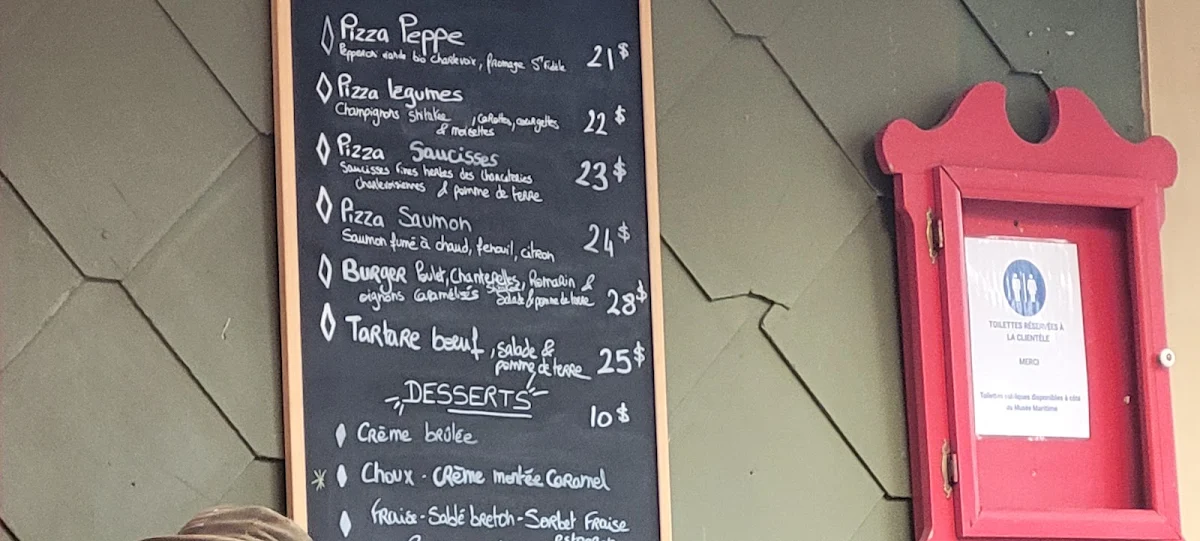 Pizza Peppe
Pepperoni viande bio Charlevoix, fromage St Fidèle 21$
Pizza légumes
Champignons shitake , carottes, courgettes 22$
& noisettes
Pizza Saucisses
Saucisses fines herbes des charcuteries 23$
Charlevoisiennes & pomme de terre
Pizza Saumon
Saumon fumé à chaud, fenouil, citron 24$
Burger Poulet, Chanterelles, Romarin &
oignons caramélisés salade & pomme de terre 28$
Tartare bœuf , salade &
pomme de terre 25$
DESSERTS
10$
Crème brûlée
Choux - Crème montée Caramel
Fraise - Sablé breton - Sorbet Fraise
TOILETTES RÉSERVÉES À
LA CLIENTÈLE
MERCI
Toilettes publiques disponibles à côté
du Musée Maritime